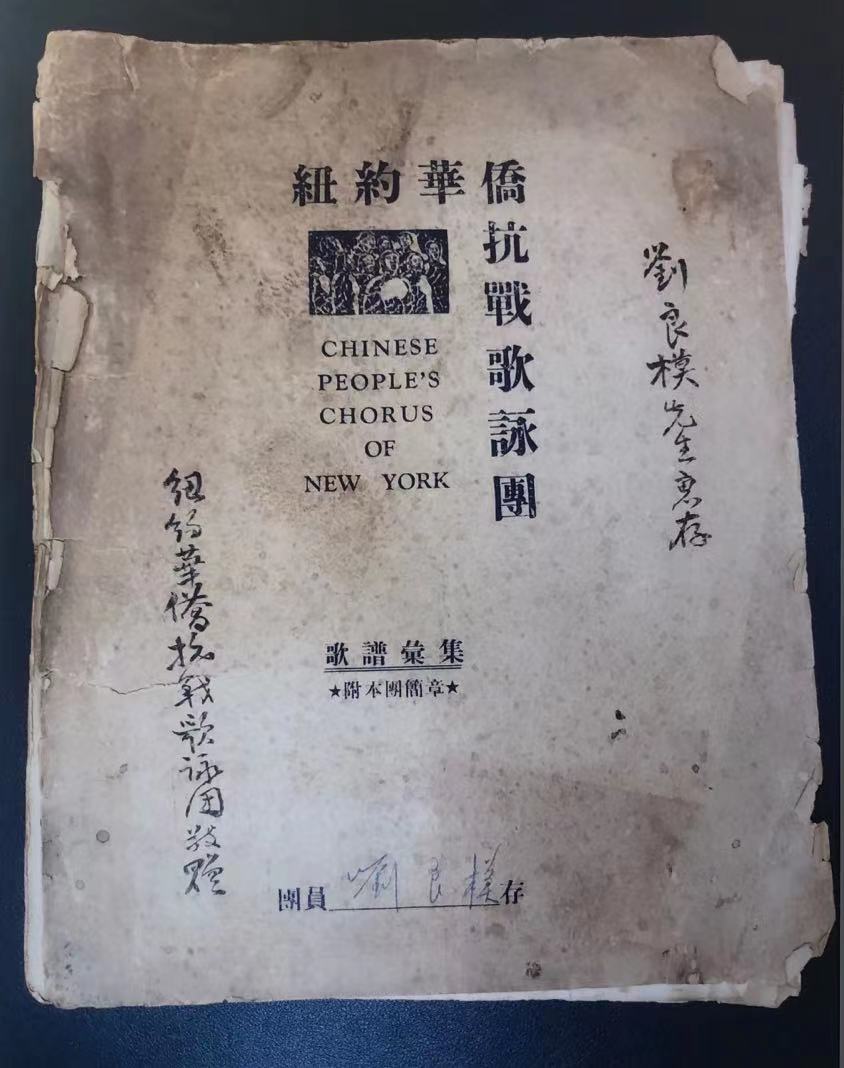 紐約華僑抗戰歌詠團
CHINESE
PEOPLE'S
CHORUS
OF
NEW YORK
劉良模先生惠存
紐約華僑抗战歌詠団敬贈
歌譜彙集
★附本團簡章★
團員 劉良模 存